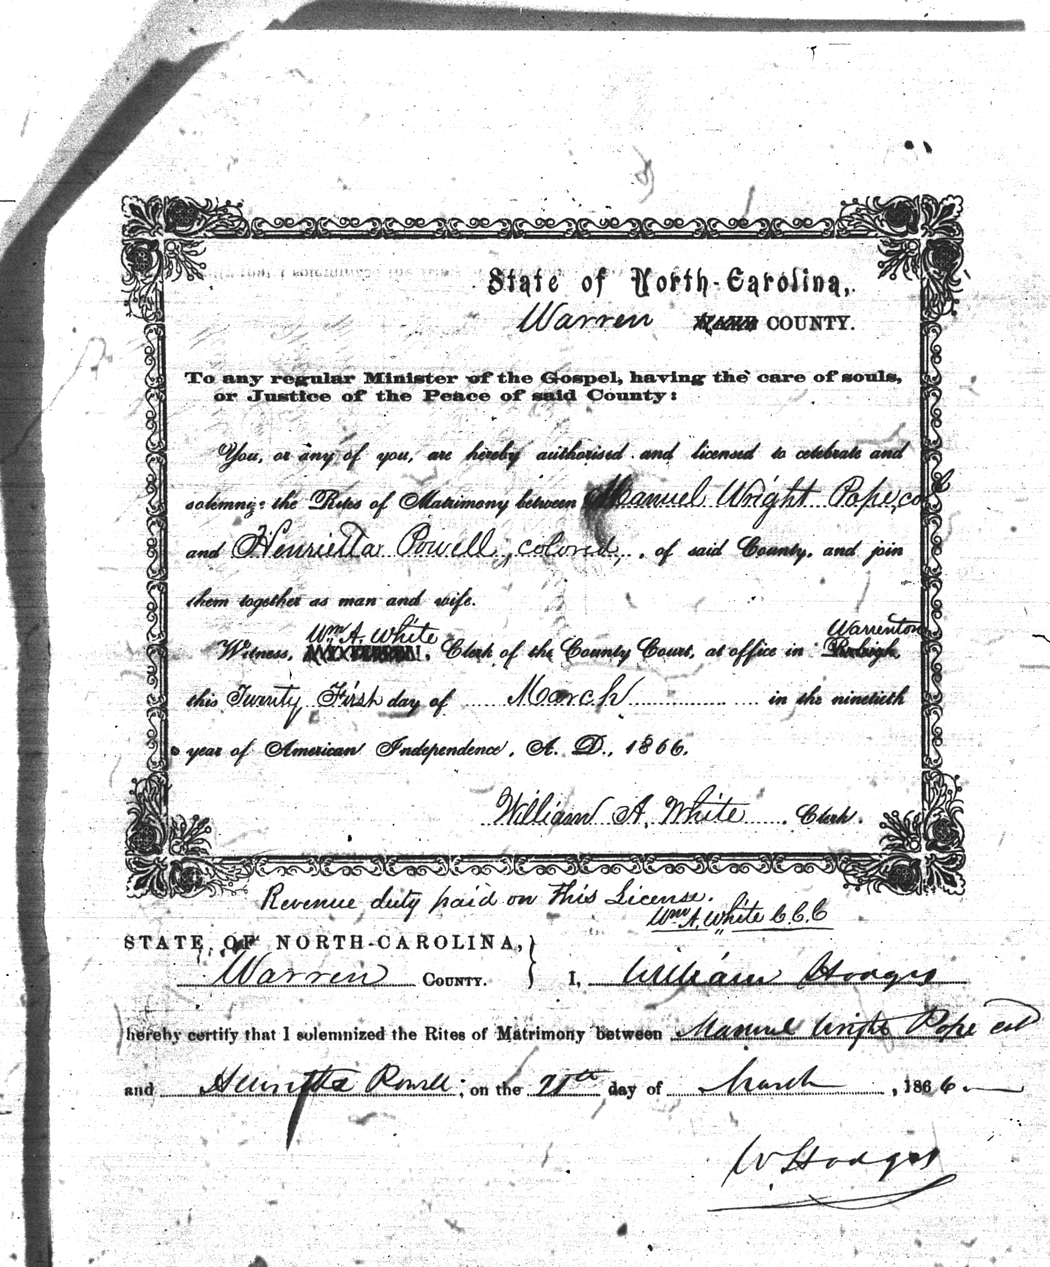 State of North-Carolina,
Warren COUNTY.
To any regular Minister of the Gospel, having the care of souls,
or Justice of the Peace of said County:
You, or any of you, are hereby authorised and licensed to celebrate and
solemnize the Rites of Matrimony between Manuel Wright Pope, col
and Henrietta Powell, colored, of said County, and join
them together as man and wife.
Wm A. White Warrenton
Witness, Clerk of the County Court, at office in Raleigh,
this Twenty First day of March in the ninetieth
year of American Independence, A. D., 1866.
William A. White Clerk.
Revenue duty paid on this License.
Wm A. White C.C.C
STATE OF NORTH-CAROLINA,
Warren COUNTY. I, William Hodges
hereby certify that I solemnized the Rites of Matrimony between Manuel Wright Pope col
and Henrietta Powell; on the 21th day of March, 1866
W Hodges